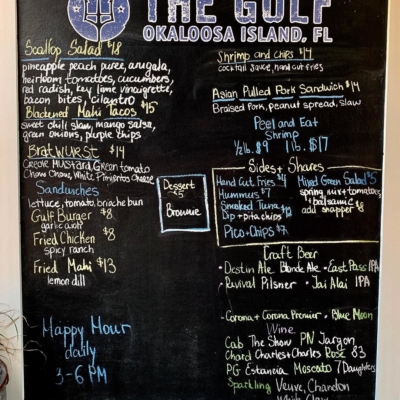 THE GULF
OKALOOSA ISLAND, FL
Scallop Salad $18
pineapple peach puree, arugala,
heirloom tomatoes, cucumbers,
red radish, key lime vinaigrette,
bacon bites, cilantro
Blackened Mahi Tacos $15
sweet chili slaw, mango salsa,
green onions, purple chips
Bratwurst $14
Creole Mustard, Green tomato
Chow Chow, White Pimento Cheese
Sandwiches
lettuce, tomato, brioche bun
Gulf Burger $8
garlic aioli
Fried Chicken $8
spicy ranch
Fried Mahi $13
lemon dill
Happy Hour
daily
3-6 PM
Dessert
$5
Brownie
Shrimp and Chips $17
cocktail sauce, hand cut fries
Asian Pulled Pork Sandwich $14
Braised pork, peanut spread, slaw
Peel and Eat
Shrimp
1/2 lb. $9 1 lb. $17
Sides + Shares
Hand Cut Fries $4
Hummus $7
Smoked Tuna
Dip + pita chips $12
Pico + Chips $7
Mixed Green Salad $5
spring mix + tomatoes
+ balsamic
add snapper $8
Craft Beer
• Destin Ale Blonde Ale • East Pass IPA
• Revival Pilsner • Jai Alai IPA
• Corona + Corona Premier • Blue Moon
Wine
Cab The Show PN Jargon
Chard Charles + Charles Rosé 83
PG Estancia Moscato 7 Daughters
Sparkling Veuve, Chandon
White Claw